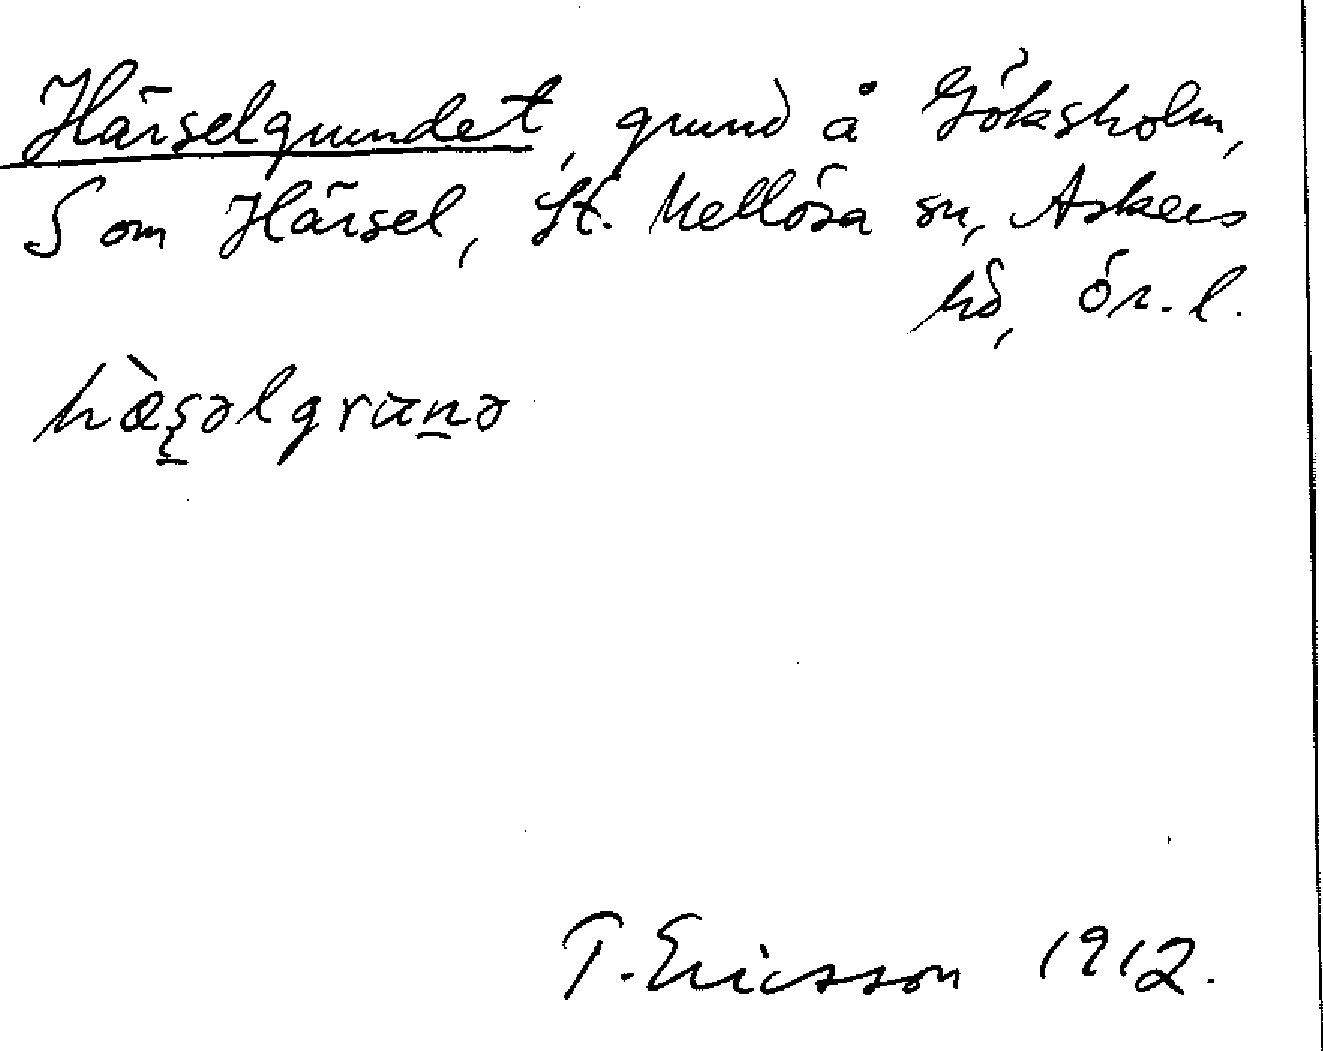 Härselgrundet, grund å Göksholm,
S om Härsel, St. Mellösa sn, Askers
hd, Ör. l.
hæ̀ʂəlgrunə
T. Ericsson 1912.